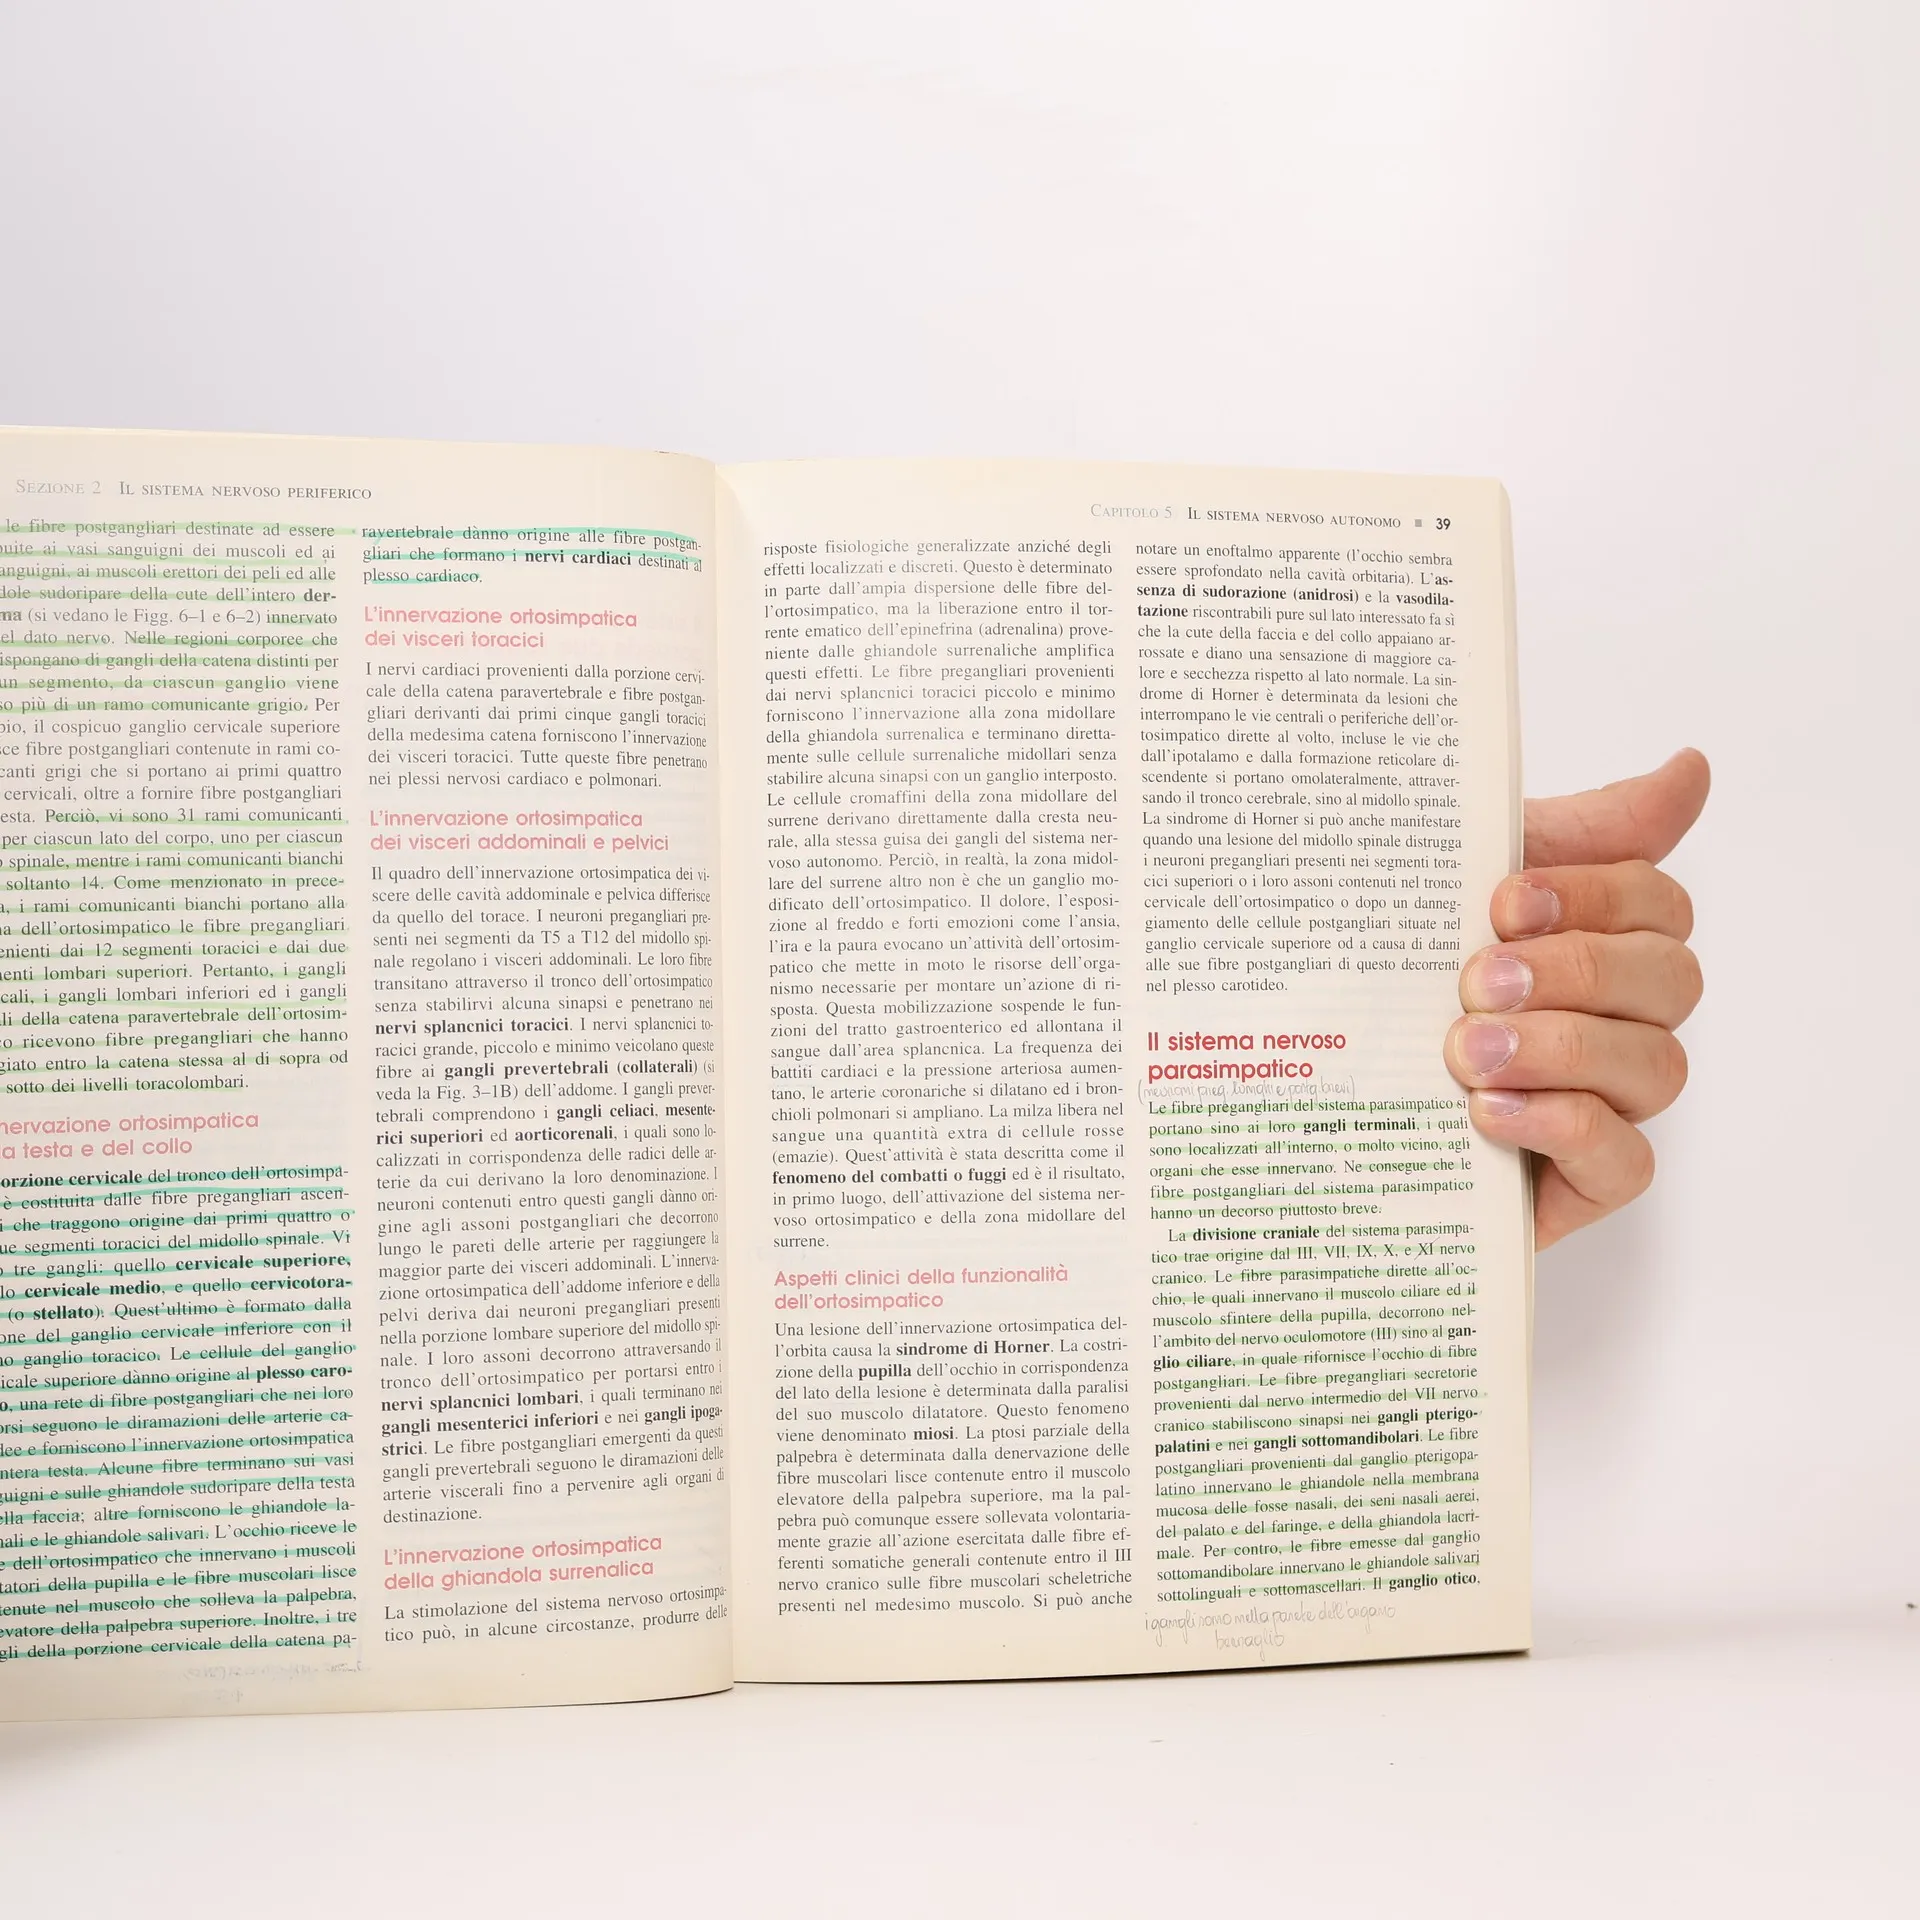 SEZIONE 2 IL SISTEMA NERVOSO PERIFERICO
le fibre postgangliari destinate ad essere
buite ai vasi sanguigni dei muscoli ed ai
anguigni, ai muscoli erettori dei peli ed alle
dole sudoripare della cute dell'intero der-
ma (si vedano le Figg. 6–1 e 6–2) innervato
el dato nervo. Nelle regioni corporee che
ispongano di gangli della catena distinti per
un segmento, da ciascun ganglio viene
so più di un ramo comunicante grigio. Per
pio, il cospicuo ganglio cervicale superiore
sce fibre postgangliari contenute in rami co-
canti grigi che si portano ai primi quattro
cervicali, oltre a fornire fibre postgangliari
esta. Perciò, vi sono 31 rami comunicanti
per ciascun lato del corpo, uno per ciascun
o spinale, mentre i rami comunicanti bianchi
soltanto 14. Come menzionato in prece-
a, i rami comunicanti bianchi portano alla
na dell'ortosimpatico le fibre pregangliari
enienti dai 12 segmenti toracici e dai due
enti lombari superiori. Pertanto, i gangli
cali, i gangli lombari inferiori ed i gangli
li della catena paravertebrale dell'ortosim-
co ricevono fibre pregangliari che hanno
giato entro la catena stessa al di sopra od
sotto dei livelli toracolombari.
nervazione ortosimpatica
a testa e del collo
orzione cervicale del tronco dell'ortosimpa-
è costituita dalle fibre pregangliari ascen-
i che traggono origine dai primi quattro o
ue segmenti toracici del midollo spinale. Vi
o tre gangli: quello cervicale superiore,
lo cervicale medio, e quello cervicotora-
(o stellato). Quest'ultimo è formato dalla
one del ganglio cervicale inferiore con il
no ganglio toracico. Le cellule del ganglio
icale superiore dànno origine al plesso caro-
o, una rete di fibre postgangliari che nei loro
orsi seguono le diramazioni delle arterie ca-
dee e forniscono l'innervazione ortosimpatica
ntera testa. Alcune fibre terminano sui vasi
guigni e sulle ghiandole sudoripare della testa
ella faccia; altre forniscono le ghiandole la-
nali e le ghiandole salivari. L'occhio riceve le
e dell'ortosimpatico che innervano i muscoli
tatori della pupilla e le fibre muscolari lisce
tenute nel muscolo che solleva la palpebra,
evatore della palpebra superiore. Inoltre, i tre
gli della porzione cervicale della catena pa-
ravertebrale dànno origine alle fibre postgan-
gliari che formano i nervi cardiaci destinati al
plesso cardiaco.
L'innervazione ortosimpatica
dei visceri toracici
I nervi cardiaci provenienti dalla porzione cervi-
cale della catena paravertebrale e fibre postgan-
gliari derivanti dai primi cinque gangli toracici
della medesima catena forniscono l'innervazione
dei visceri toracici. Tutte queste fibre penetrano
nei plessi nervosi cardiaco e polmonari.
L'innervazione ortosimpatica
dei visceri addominali e pelvici
Il quadro dell'innervazione ortosimpatica dei vi-
scere delle cavità addominale e pelvica differisce
da quello del torace. I neuroni pregangliari pre-
senti nei segmenti da T5 a T12 del midollo spi-
nale regolano i visceri addominali. Le loro fibre
transitano attraverso il tronco dell'ortosimpatico
senza stabilirvi alcuna sinapsi e penetrano nei
nervi splancnici toracici. I nervi splancnici to-
racici grande, piccolo e minimo veicolano queste
fibre ai gangli prevertebrali (collaterali) (si
veda la Fig. 3–1B) dell'addome. I gangli prever-
tebrali comprendono i gangli celiaci, mesente-
rici superiori ed aorticorenali, i quali sono lo-
calizzati in corrispondenza delle radici delle ar-
terie da cui derivano la loro denominazione. I
neuroni contenuti entro questi gangli dànno ori-
gine agli assoni postgangliari che decorrono
lungo le pareti delle arterie per raggiungere la
maggior parte dei visceri addominali. L'innerva-
zione ortosimpatica dell'addome inferiore e della
pelvi deriva dai neuroni pregangliari presenti
nella porzione lombare superiore del midollo spi-
nale. I loro assoni decorrono attraversando il
tronco dell'ortosimpatico per portarsi entro i
nervi splancnici lombari, i quali terminano nei
gangli mesenterici inferiori e nei gangli ipoga-
strici. Le fibre postgangliari emergenti da questi
gangli prevertebrali seguono le diramazioni delle
arterie viscerali fino a pervenire agli organi di
destinazione.
L'innervazione ortosimpatica
della ghiandola surrenalica
La stimolazione del sistema nervoso ortosimpa-
tico può, in alcune circostanze, produrre delle
CAPITOLO 5 IL SISTEMA NERVOSO AUTONOMO ■ 39
risposte fisiologiche generalizzate anziché degli
effetti localizzati e discreti. Questo è determinato
in parte dall'ampia dispersione delle fibre del-
l'ortosimpatico, ma la liberazione entro il tor-
rente ematico dell'epinefrina (adrenalina) prove-
niente dalle ghiandole surrenaliche amplifica
questi effetti. Le fibre pregangliari provenienti
dai nervi splancnici toracici piccolo e minimo
forniscono l'innervazione alla zona midollare
della ghiandola surrenalica e terminano diretta-
mente sulle cellule surrenaliche midollari senza
stabilire alcuna sinapsi con un ganglio interposto.
Le cellule cromaffini della zona midollare del
surrene derivano direttamente dalla cresta neu-
rale, alla stessa guisa dei gangli del sistema ner-
voso autonomo. Perciò, in realtà, la zona midol-
lare del surrene altro non è che un ganglio mo-
dificato dell'ortosimpatico. Il dolore, l'esposi-
zione al freddo e forti emozioni come l'ansia,
l'ira e la paura evocano un'attività dell'ortosim-
patico che mette in moto le risorse dell'orga-
nismo necessarie per montare un'azione di ri-
sposta. Questa mobilizzazione sospende le fun-
zioni del tratto gastroenterico ed allontana il
sangue dall'area splancnica. La frequenza dei
battiti cardiaci e la pressione arteriosa aumen-
tano, le arterie coronariche si dilatano ed i bron-
chioli polmonari si ampliano. La milza libera nel
sangue una quantità extra di cellule rosse
(emazie). Quest'attività è stata descritta come il
fenomeno del combatti o fuggi ed è il risultato,
in primo luogo, dell'attivazione del sistema ner-
voso ortosimpatico e della zona midollare del
surrene.
Aspetti clinici della funzionalità
dell'ortosimpatico
Una lesione dell'innervazione ortosimpatica del-
l'orbita causa la sindrome di Horner. La costri-
zione della pupilla dell'occhio in corrispondenza
del lato della lesione è determinata dalla paralisi
del suo muscolo dilatatore. Questo fenomeno
viene denominato miosi. La ptosi parziale della
palpebra è determinata dalla denervazione delle
fibre muscolari lisce contenute entro il muscolo
elevatore della palpebra superiore, ma la pal-
pebra può comunque essere sollevata volontaria-
mente grazie all'azione esercitata dalle fibre ef-
ferenti somatiche generali contenute entro il III
nervo cranico sulle fibre muscolari scheletriche
presenti nel medesimo muscolo. Si può anche
notare un enoftalmo apparente (l'occhio sembra
essere sprofondato nella cavità orbitaria). L'as-
senza di sudorazione (anidrosi) e la vasodila-
tazione riscontrabili pure sul lato interessato fa sì
che la cute della faccia e del collo appaiano ar-
rossate e diano una sensazione di maggiore ca-
lore e secchezza rispetto al lato normale. La sin-
drome di Horner è determinata da lesioni che
interrompano le vie centrali o periferiche dell'or-
tosimpatico dirette al volto, incluse le vie che
dall'ipotalamo e dalla formazione reticolare di-
scendente si portano omolateralmente, attraver-
sando il tronco cerebrale, sino al midollo spinale.
La sindrome di Horner si può anche manifestare
quando una lesione del midollo spinale distrugga
i neuroni pregangliari presenti nei segmenti tora-
cici superiori o i loro assoni contenuti nel tronco
cervicale dell'ortosimpatico o dopo un danneg-
giamento delle cellule postgangliari situate nel
ganglio cervicale superiore od a causa di danni
alle sue fibre postgangliari di questo decorrenti
nel plesso carotideo.
Il sistema nervoso
parasimpatico
(neuroni preg. lunghi e postg brevi)
Le fibre pregangliari del sistema parasimpatico si
portano sino ai loro gangli terminali, i quali
sono localizzati all'interno, o molto vicino, agli
organi che esse innervano. Ne consegue che le
fibre postgangliari del sistema parasimpatico
hanno un decorso piuttosto breve.
La divisione craniale del sistema parasimpa-
tico trae origine dal III, VII, IX, X, e XI nervo
cranico. Le fibre parasimpatiche dirette all'oc-
chio, le quali innervano il muscolo ciliare ed il
muscolo sfintere della pupilla, decorrono nel-
l'ambito del nervo oculomotore (III) sino al gan-
glio ciliare, in quale rifornisce l'occhio di fibre
postgangliari. Le fibre pregangliari secretorie
provenienti dal nervo intermedio del VII nervo
cranico stabiliscono sinapsi nei gangli pterigo-
palatini e nei gangli sottomandibolari. Le fibre
postgangliari provenienti dal ganglio pterigopa-
latino innervano le ghiandole nella membrana
mucosa delle fosse nasali, dei seni nasali aerei,
del palato e del faringe, e della ghiandola lacri-
male. Per contro, le fibre emesse dal ganglio
sottomandibolare innervano le ghiandole salivari
sottolinguali e sottomascellari. Il ganglio otico,
i gangli sono nella parete dell'organo
bersaglio